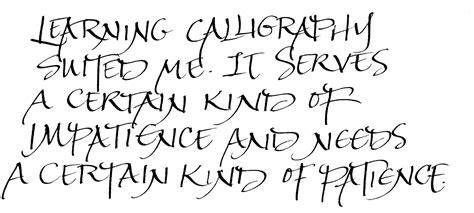 LEARNING CALLIGRAPHY
SUITED ME. IT SERVES
A CERTAIN KIND OF
IMPATIENCE AND NEEDS
A CERTAIN KIND OF PATIENCE.